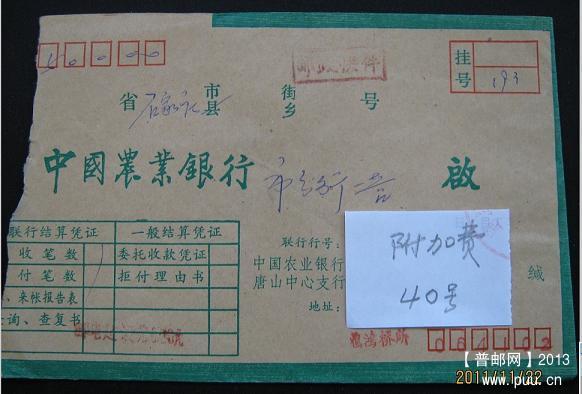 050000
邮政快件
挂号 193
省 石家庄 市县 街乡 号
中國農業銀行 市分行营 啟
联行结算凭证 一般结算凭证
收笔数 委托收款凭证
付笔数 拒付理由书
、来帐报表
查询、查复书
联行行号:
中国农业银行
唐山中心支行
地址:
缄
附加费
40号
【普邮网】2013
2011/11/22
www.1puu.cn